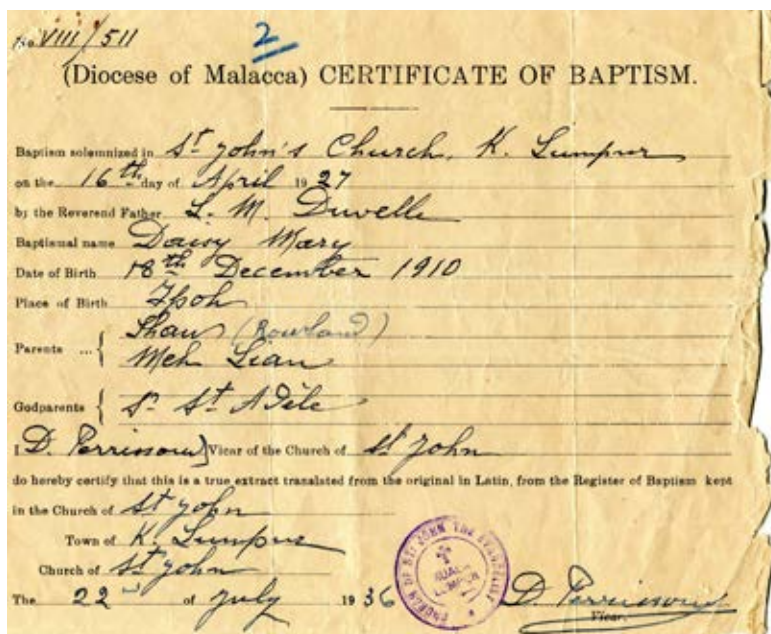 No. VIII/511
2
(Diocese of Malacca) CERTIFICATE OF BAPTISM.
Baptism solemnized in St John's Church, K. Lumpur
on the 16th day of April 1927
by the Reverend Father L. M. Duvelle
Baptismal name Daisy Mary
Date of Birth 18th December 1910
Place of Birth Ipoh
Parents ... { Shaw (Rowland)
Meh Lian
Godparents { Sr St Adèle
I D. Perrissoud Vicar of the Church of St John
do hereby certify that this is a true extract translated from the original in Latin, from the Register of Baptism kept
in the Church of St John
Town of K. Lumpur
Church of St John
The 22nd of July 1936
CHURCH OF ST. JOHN THE EVANGELIST
KUALA LUMPUR
D. Perrissoud
Vicar.